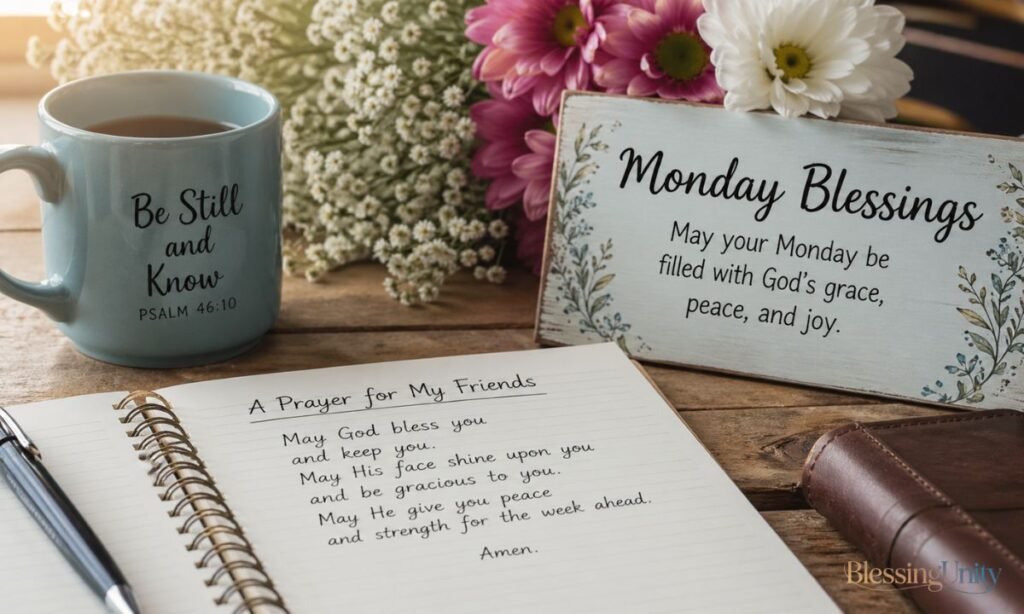 Be Still
and
Know
PSALM 46:10
Monday Blessings
May your Monday be
filled with God's grace,
peace, and joy.
A Prayer for My Friends
May God bless you
and keep you.
May His face shine upon you
and be gracious to you.
May He give you peace
and strength for the week ahead.
Amen.
BlessingUnity